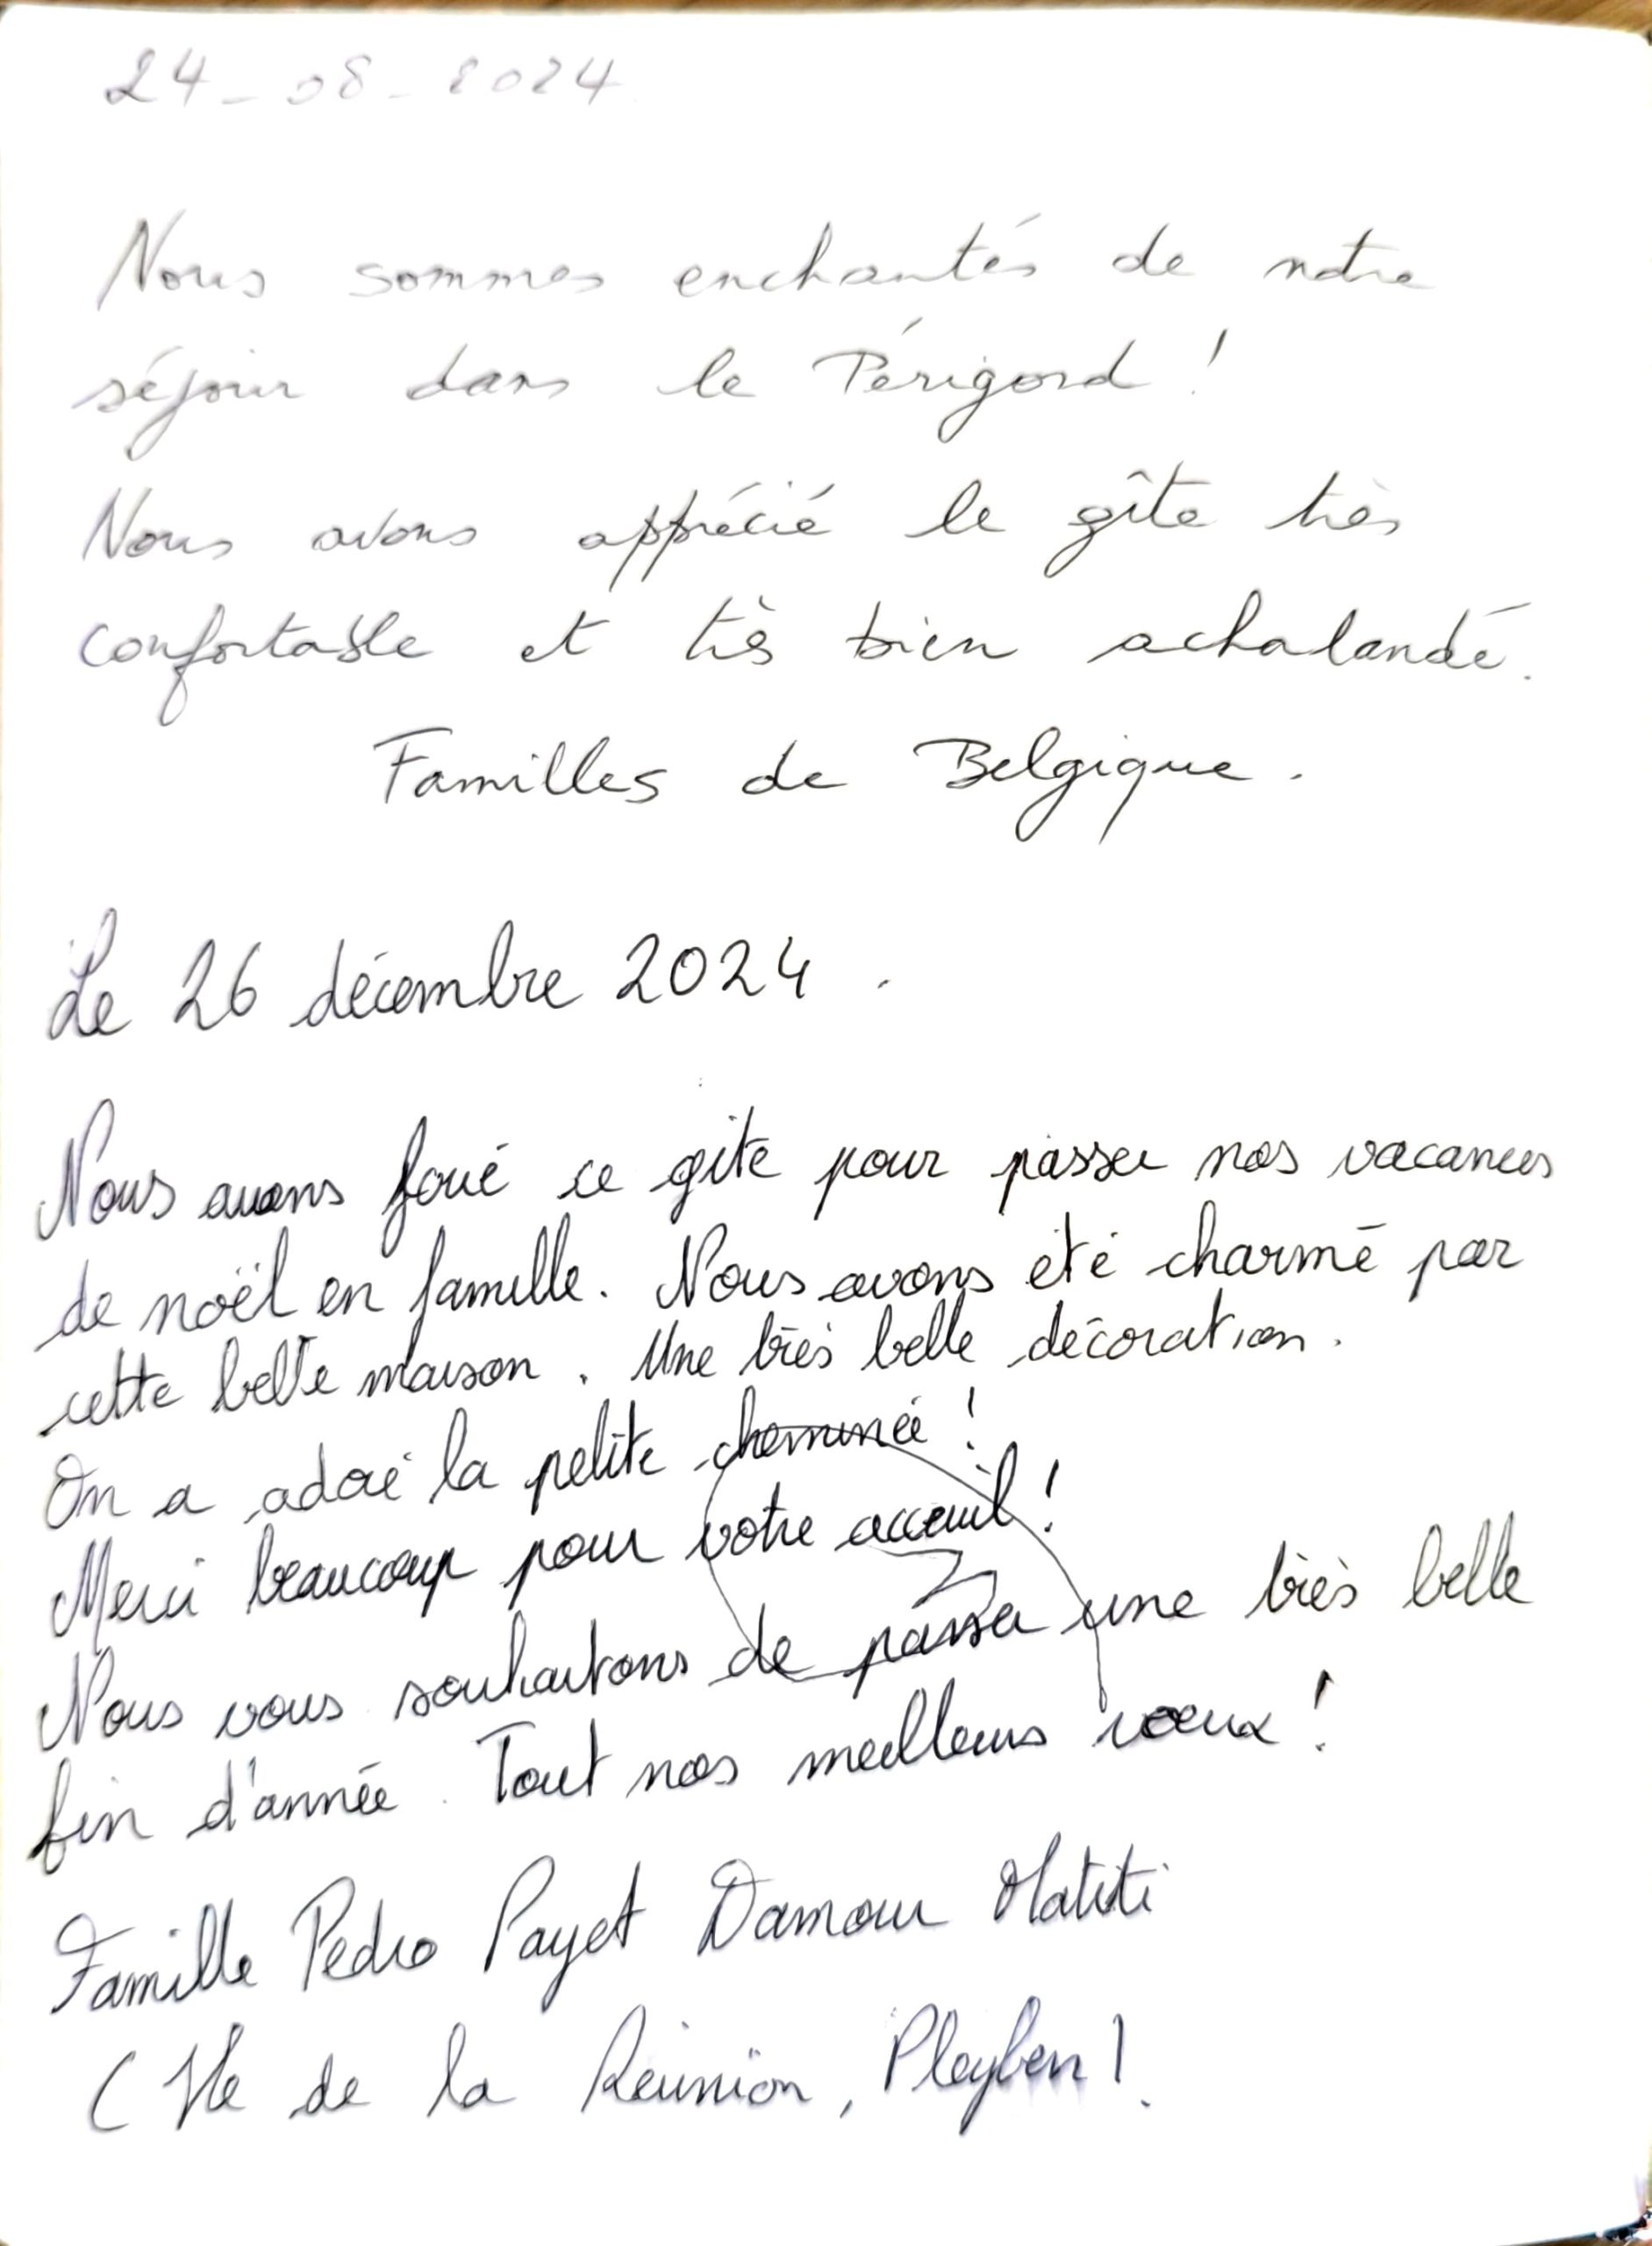 24-08-2024
Nous sommes enchantés de notre
séjour dans le Périgord !
Nous avons apprécié le gîte très
confortable et très bien achalandé.
Familles de Belgique.
Le 26 décembre 2024.
Nous avons loué ce gite pour passer nos vacances
de noël en famille. Nous avons été charmé par
cette belle maison. Une très belle décoration.
On a adoré la petite cheminée !
Merci beaucoup pour votre acceuil !
Nous vous souhaitons de passer une très belle
fin d'année. Tout nos meilleurs voeux !
Famille Pedro Payet Damour
(Ile de la Réunion, Pleyben).